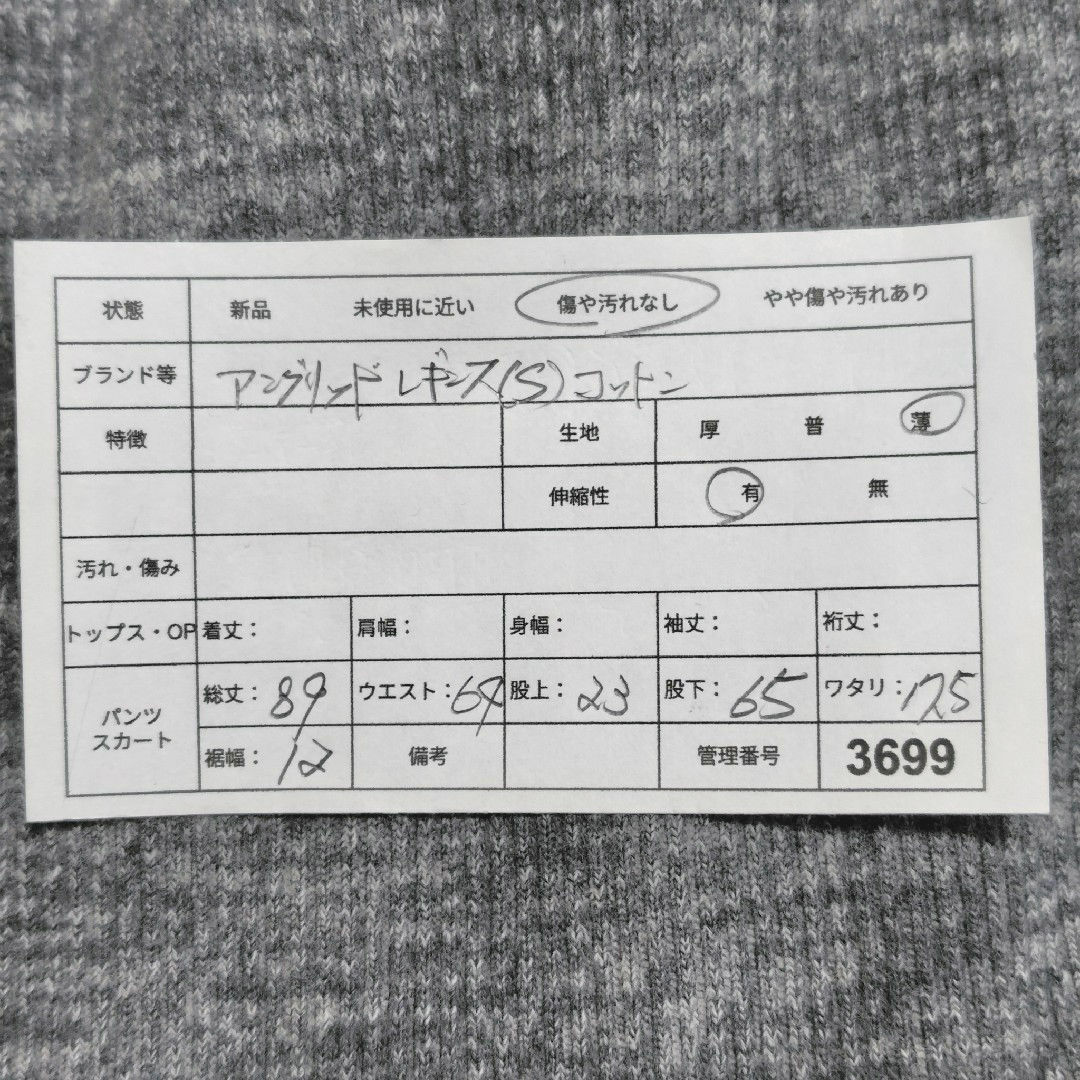 状態 新品 未使用に近い 傷や汚れなし やや傷や汚れあり
ブランド等 アングリッド レギンス(S) コットン
特徴 生地 厚 普 薄
伸縮性 有 無
汚れ・傷み
トップス・OP 着丈： 肩幅： 身幅： 袖丈： 裄丈：
パンツ スカート 総丈：89 ウエスト：64 股上：23 股下：65 ワタリ：17.5
裾幅：12 備考 管理番号 3699